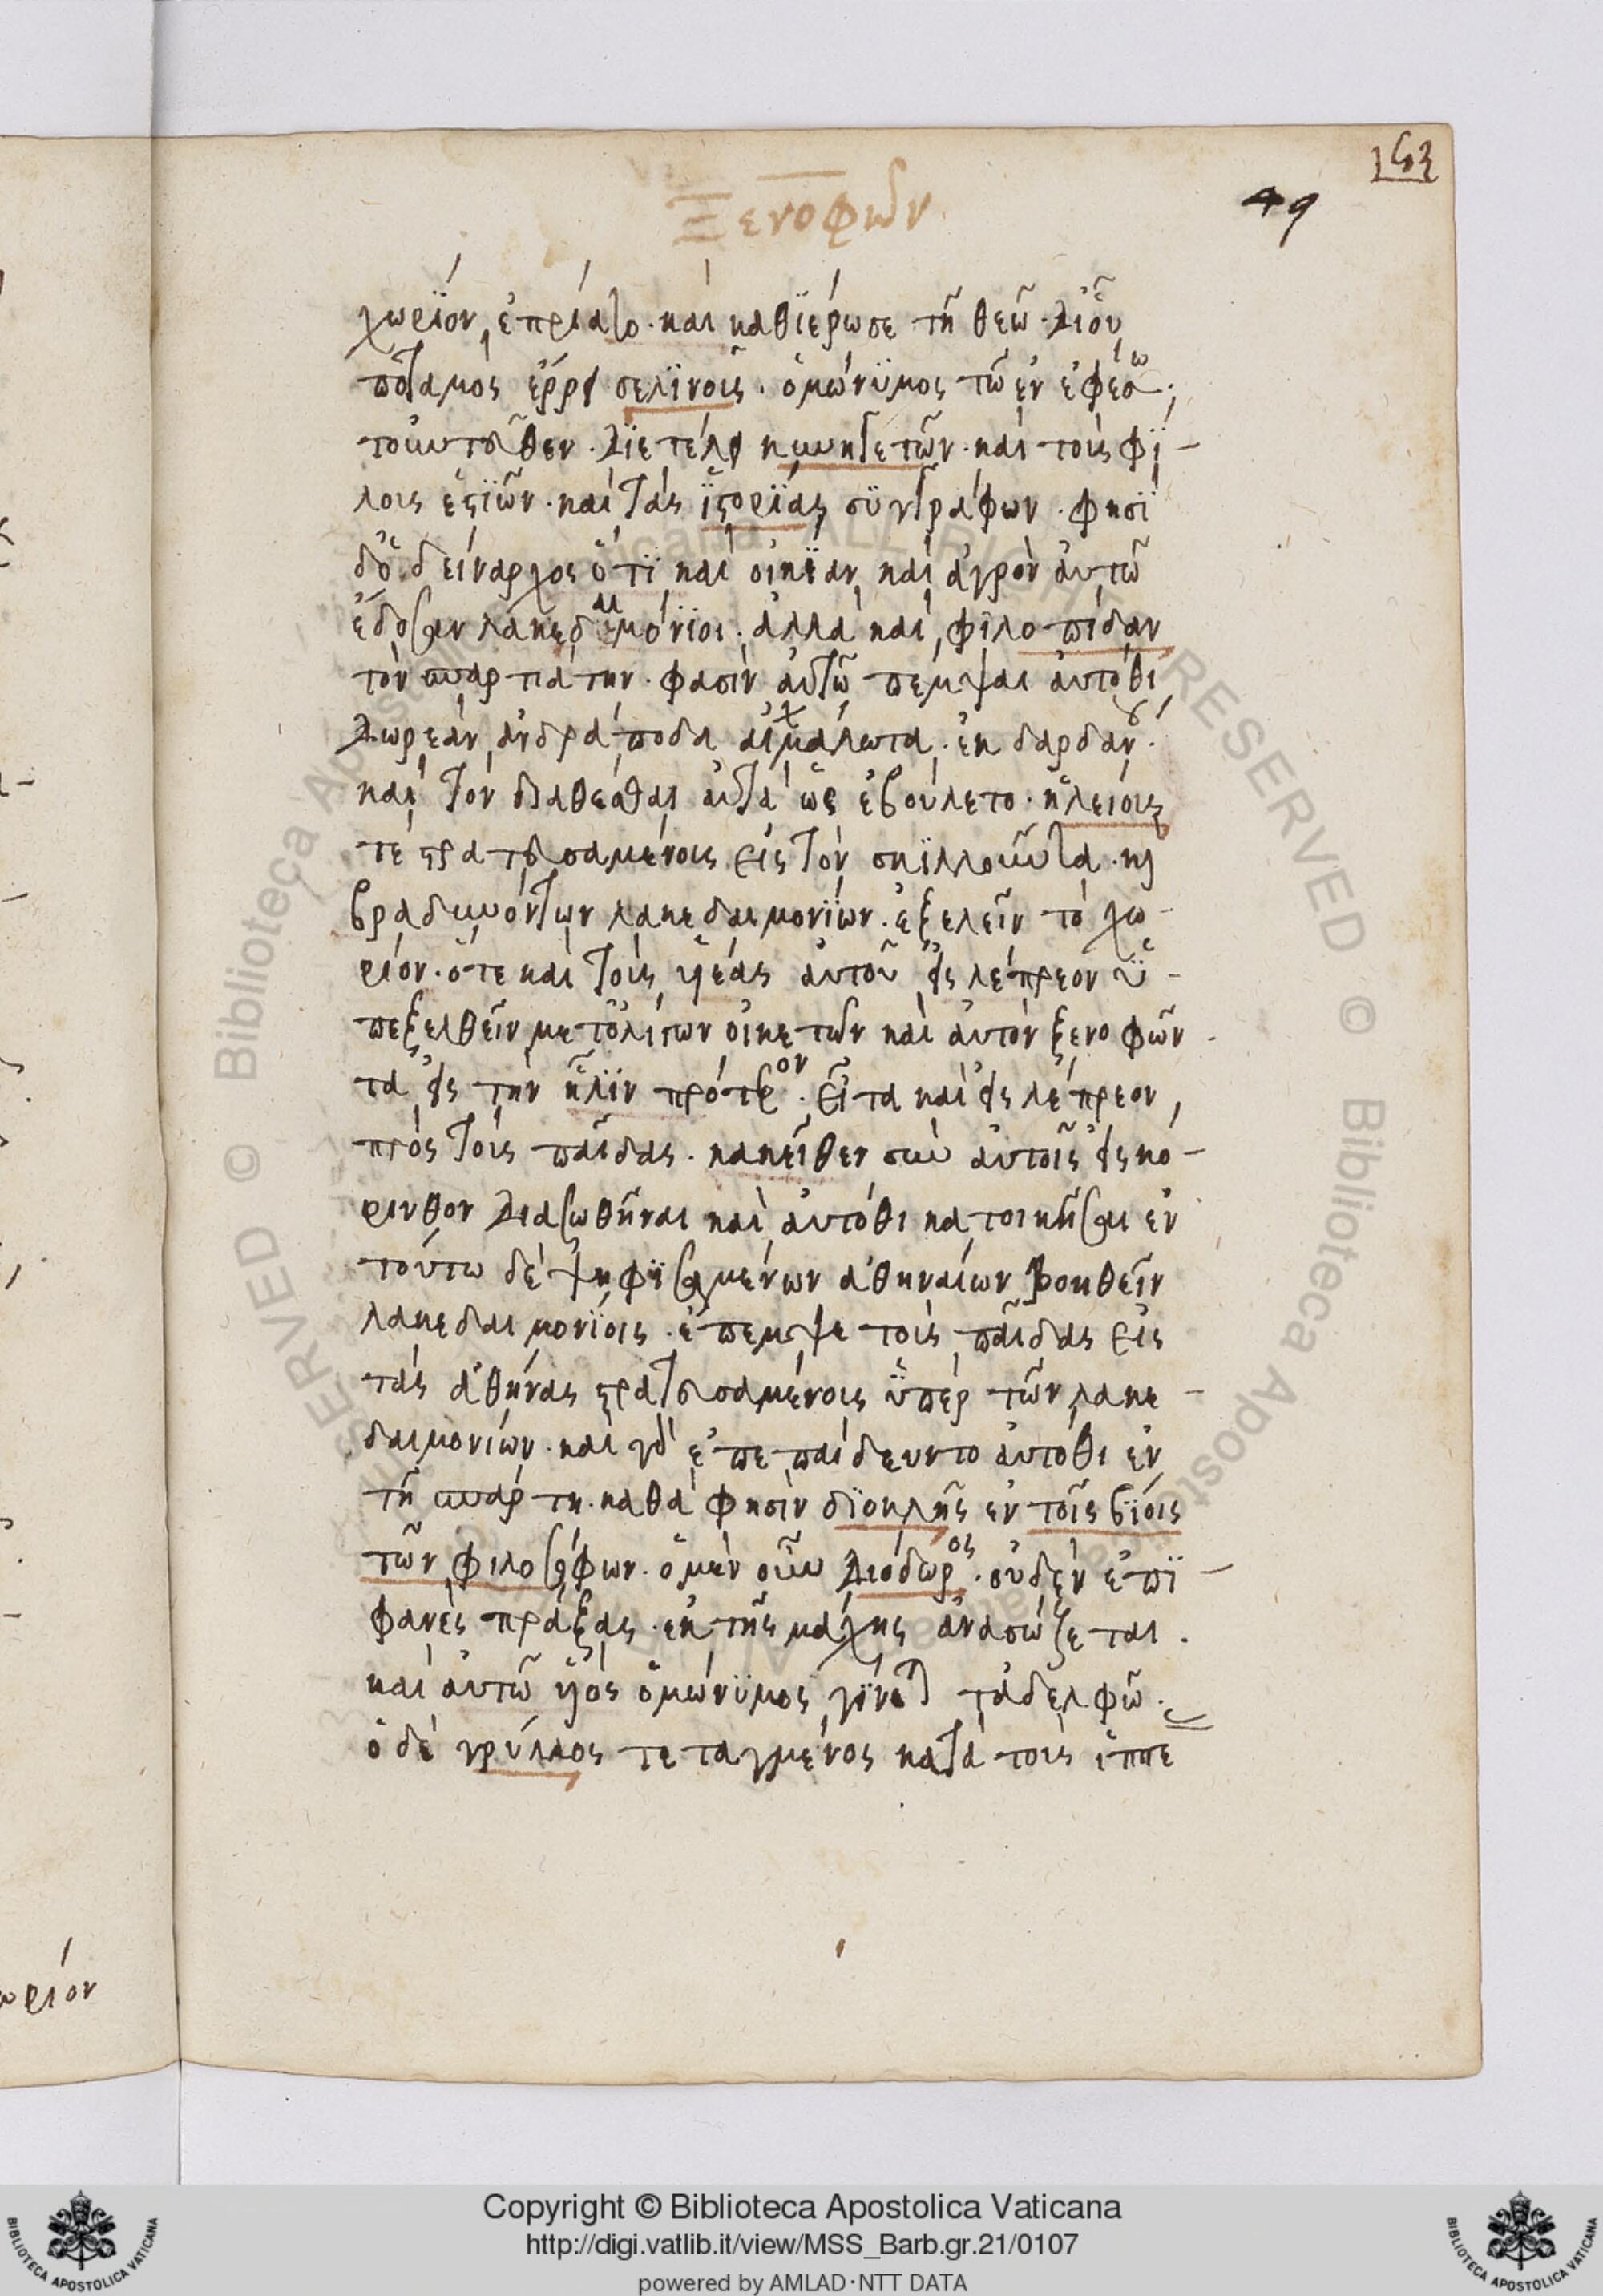 153
49
Ξενοφῶν
χωρίον, ἐπρίατο· καὶ καθιέρωσε τῆ θεῶ· δι' οὗ
ποταμος ἔρρει σελινοῦς· ὁμώνυμος τῶ ἐν ἐφέσω·
τοὐντεῦθεν· διετέλει κυνηγετῶν· καὶ τοὺς φί-
λους ἑστιῶν· καὶ τὰς ἱστορίας συγγράφων· φησὶ
δ' ὁ δείναρχος ὅτι καὶ οἰκίαν καὶ ἀγρὸν αὐτῶ
ἔδοσαν λακεδαιμόνιοι· ἀλλὰ καὶ φιλοπίδαν
τὸν σπαρτιάτην· φασὶν αὐτῶ πέμψαι αὐτόθι
δωρεὰν ἀνδράποδα αἰχμάλωτα· ἐκ δαρδάνου·
καὶ τὸν διαθέσθαι αὐτὰ ὡς ἐβούλετο· ἠλείους
τὲ στρατευσαμένους εἰς τὸν σκιλλοῦντα· καὶ
βραδυνόντων λακεδαιμονίων· ἐξελεῖν τὸ χω-
ρίον· ὅτε καὶ τοὺς υἱέας αὐτοῦ εἰς λέπρεον ὑ-
πεξελθεῖν μετ' ὀλίγων οἰκετῶν καὶ αὐτὸν ξενοφῶν
τα εἰς τὴν ἦλιν πρότερον· εἶτα καὶ εἰς λέπρεον,
πρὸς τοὺς παῖδας· κακεῖθεν σὺν αὐτοῖς εἰς κό-
ρινθον διασωθῆναι καὶ αὐτόθι κατοικῆσαι ἐν
τούτω δὲ ψηφισαμένων ἀθηναίων βοηθεῖν
λακεδαιμονίοις· ἔπεμψε τοὺς παῖδας εἰς
τὰς ἀθήνας στρατευσαμένους ὑπὲρ τῶν λακε-
δαιμονίων· καὶ γὰρ ἐπεπαίδευντο αὐτόθι ἐν
τῆ σπάρτη· καθά φησιν διοκλῆς ἐν τοῖς βίοις
τῶν φιλοσόφων· ὁ μὲν οὖν διόδωρος· οὐδὲν ἐπι-
φανὲς πράξας· ἐκ τῆς μάχης ἀνασώζεται·
καὶ αὐτῶ υἱὸς ὁμώνυμος γίνεται τἀδελφῶ·
ὁ δὲ γρύλλος τεταγμένος κατὰ τοὺς ἱππε
ωρίον
Copyright © Biblioteca Apostolica Vaticana
http://digi.vatlib.it/view/MSS_Barb.gr.21/0107
powered by AMLAD·NTT DATA